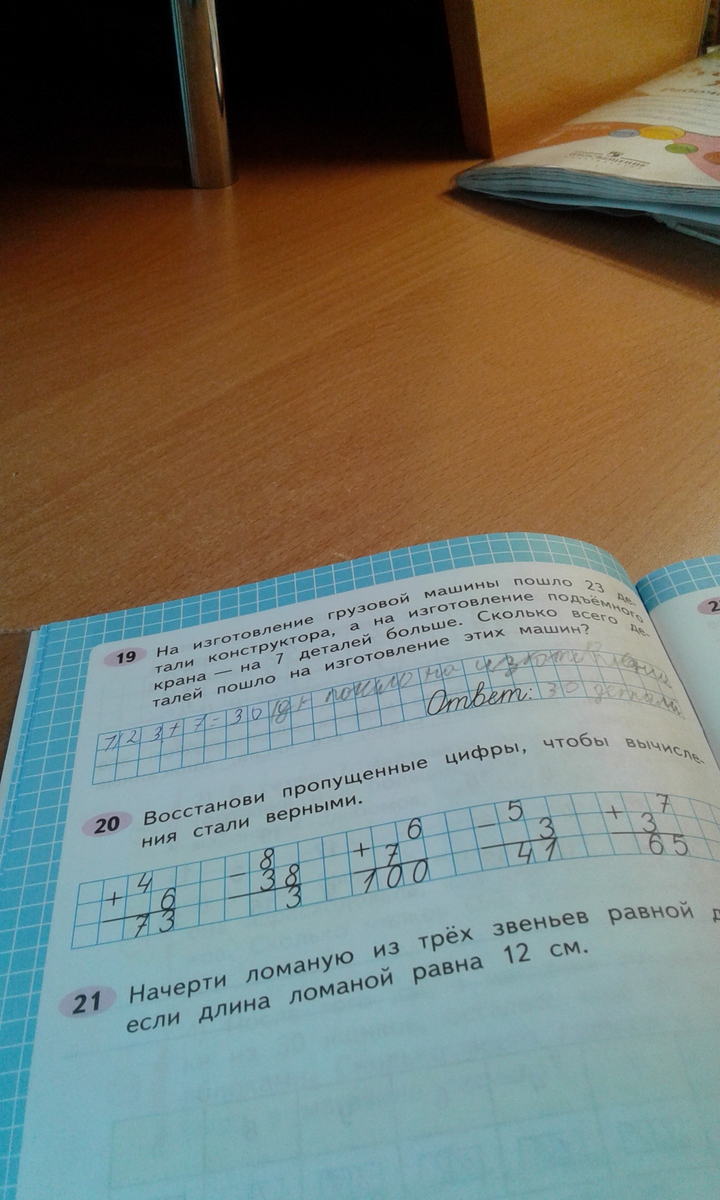 19 На изготовление грузовой машины пошло 23 де-
тали конструктора, а на изготовление подъёмного
крана — на 7 деталей больше. Сколько всего де-
талей пошло на изготовление этих машин?
23+7=30 пошло на
Ответ: 30
20 Восстанови пропущенные цифры, чтобы вычисле-
ния стали верными.
4 8 6 5 7
+ 6 - 38 + 7 - 3 + 3
73 3 100 41 65
21 Начерти ломаную из трёх звеньев равной д
если длина ломаной равна 12 см.